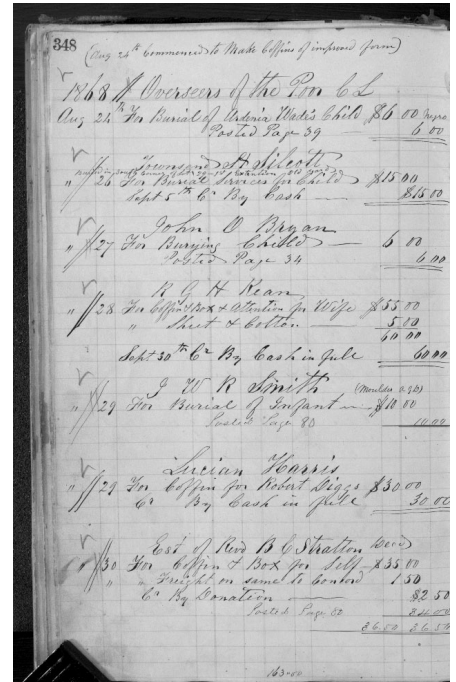 348
(Aug 24th Commenced to Make Coffins of improved form)
1868 Overseers of the Poor C L
Aug 24th For Burial of Ardenia Child $6 00 Negro
Posted Page 39 — 6 00
Townsend St
" 26 For Burial Services for Child $15 00
Sept 5th Cr By Cash — $15 00
John O Bryan
" 27 For Burying Child — 6 00
Posted Page 34 6 00
R G H Kean
" 28 For Coffin & Box & Attention for Wife $55 00
" Sheet & Cotton — 5 00
60 00
Sept 30th Cr By Cash in full 60 00
J W R Smith (Moulder
" 29 For Burial of Infant — $10 00
Posted Page 80 10 00
Lucian Harris
" 29 For Coffin for Robert Diggs $30 00
Cr By Cash in full 30 00
Est of Revd B C Stratton Decd
30 For Coffin & Box for Self — $35 00
" Freight on same to 1 50
Cr By Donation — $2 50
Posted Page 34 00
36 50 36 50
163 00